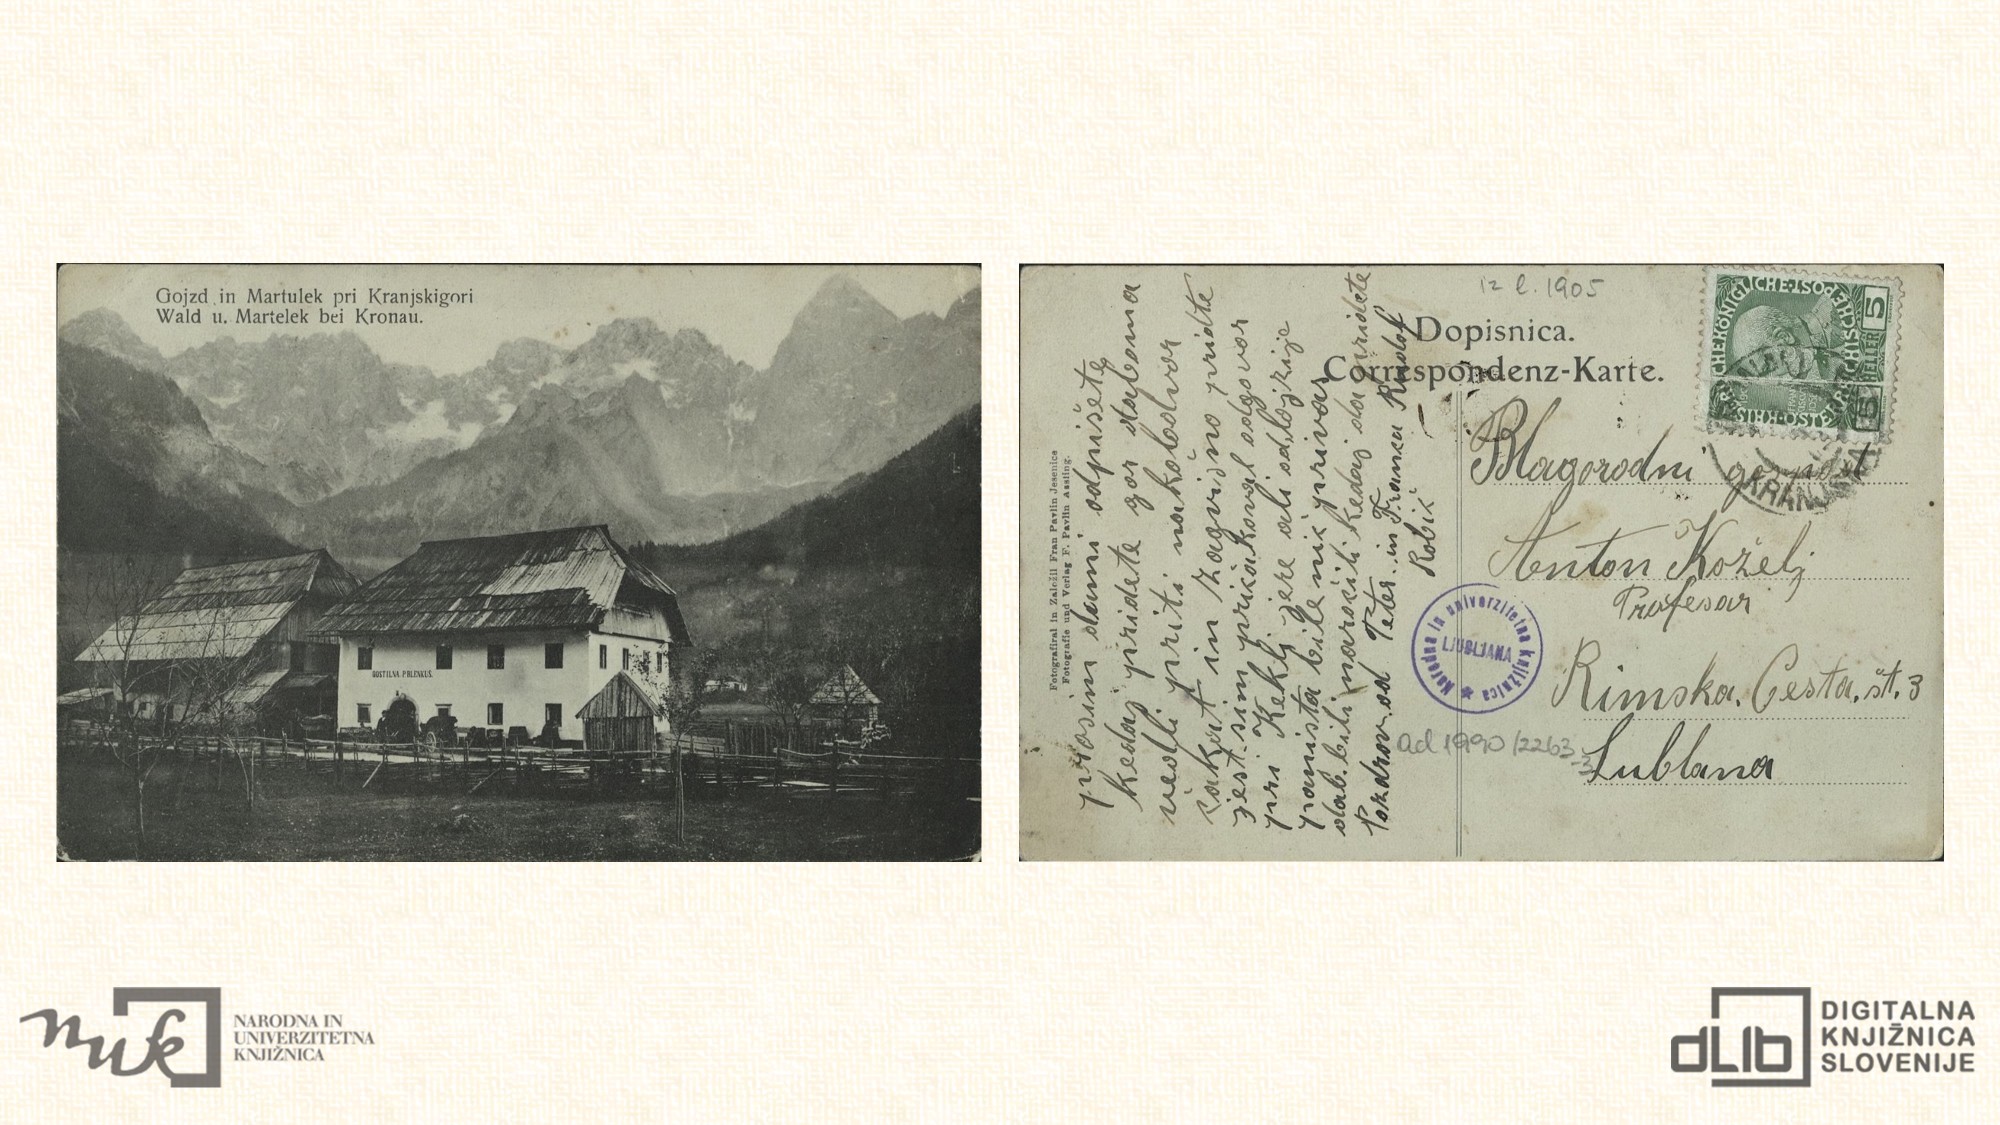 Gojzd in Martulek pri Kranjskigori
Wald u. Martelek bei Kronau.
GOSTILNA P.RLENKUŠ.
Fotografiral in Založil Fran Pavlin Jesenice
Fotografie und Verlag F. Pavlin Assling.
prosim dami odpišete
kedaj pridete gor daboma
vedli priti na kolodvor
zakat in zagvišno pridte
jest sim pričakoval odgovor
pri Keklj jere ali odlojzije
panista bile nič privas
dabi bili naročili kedaj da pridete
Pozdrav od Peter in Franca Rudolf
Robič
12 l. 1905
Dopisnica.
Correspondenz-Karte.
5
HELLER
KRANJ
Blagorodni gospod
Anton Koželj
Profesar
Rimska Cesta, št. 3
Lublana
Narodna in univerzitetna knjižnica
LJUBLJANA
ad 1990/2263
nuk
NARODNA IN
UNIVERZITETNA
KNJIŽNICA
dLib
DIGITALNA
KNJIŽNICA
SLOVENIJE